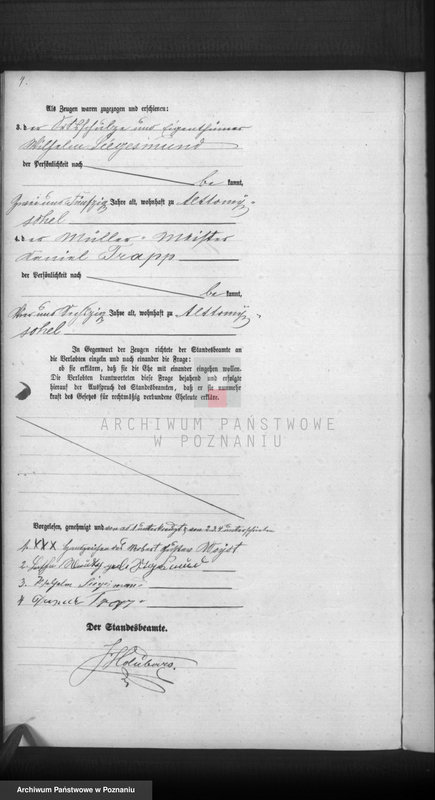 4.
Als Zeugen waren zugezogen und erschienen:
3. der Ortsschulze und Eigenthümer
Wilhelm Siegesmund
der Persönlichkeit nach
be kannt,
Zwei und Fünfzig Jahre alt, wohnhaft zu Alttomy-
schel
4. der Müller-Meister
Daniel Trapp
der Persönlichkeit nach
be kannt,
Vier und Sechszig Jahre alt, wohnhaft zu Alttomy-
schel
In Gegenwart der Zeugen richtete der Standesbeamte an
die Verlobten einzeln und nach einander die Frage:
ob sie erklären, daß sie die Ehe mit einander eingehen wollen.
Die Verlobten beantworteten diese Frage bejahend und erfolgte
hierauf der Ausspruch des Standesbeamten, daß er sie nunmehr
kraft des Gesetzes für rechtmäßig verbundene Eheleute erkläre.
ARCHIWUM PAŃSTWOWE
W POZNANIU
Vorgelesen, genehmigt und von 2. 3. 4 unterschrieben
1. XXX Handzeichen des Robert Gustav Weigt
2.
3. Wilhelm Siegesmund
4 Daniel Trapp
Der Standesbeamte.
Archiwum Państwowe w Poznaniu